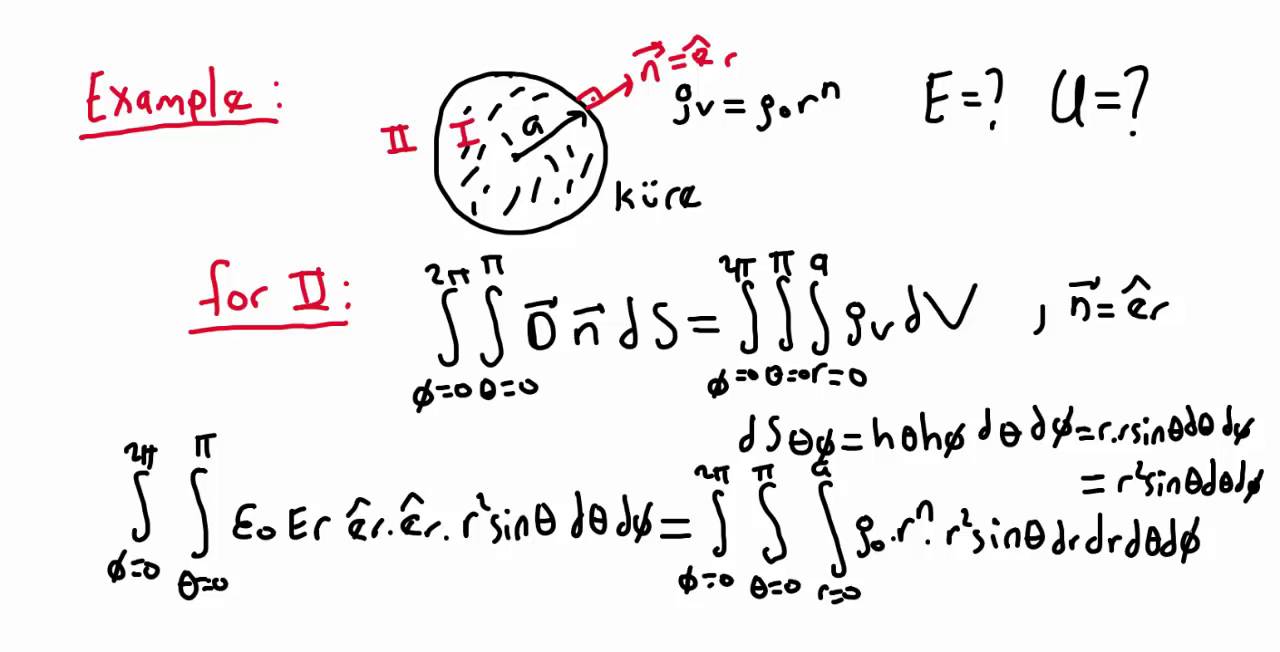 Example: II I a n⃗ = êr ρv = ρ₀rⁿ E=? U=?
küre
for II: ∫_{φ=0}^{2π} ∫_{θ=0}^{π} D⃗ n⃗ dS = ∫_{φ=0}^{2π} ∫_{θ=0}^{π} ∫_{r=0}^{a} ρv dV , n⃗ = êr
dSθφ = hθhφ dθ dφ = r.r sinθ dθ dφ
= r² sinθ dθ dφ
∫_{φ=0}^{2π} ∫_{θ=0}^{π} ε₀ Er êr.êr. r² sinθ dθ dφ = ∫_{φ=0}^{2π} ∫_{θ=0}^{π} ∫_{r=0}^{a} ρ₀.rⁿ. r² sinθ dr dr dθ dφ